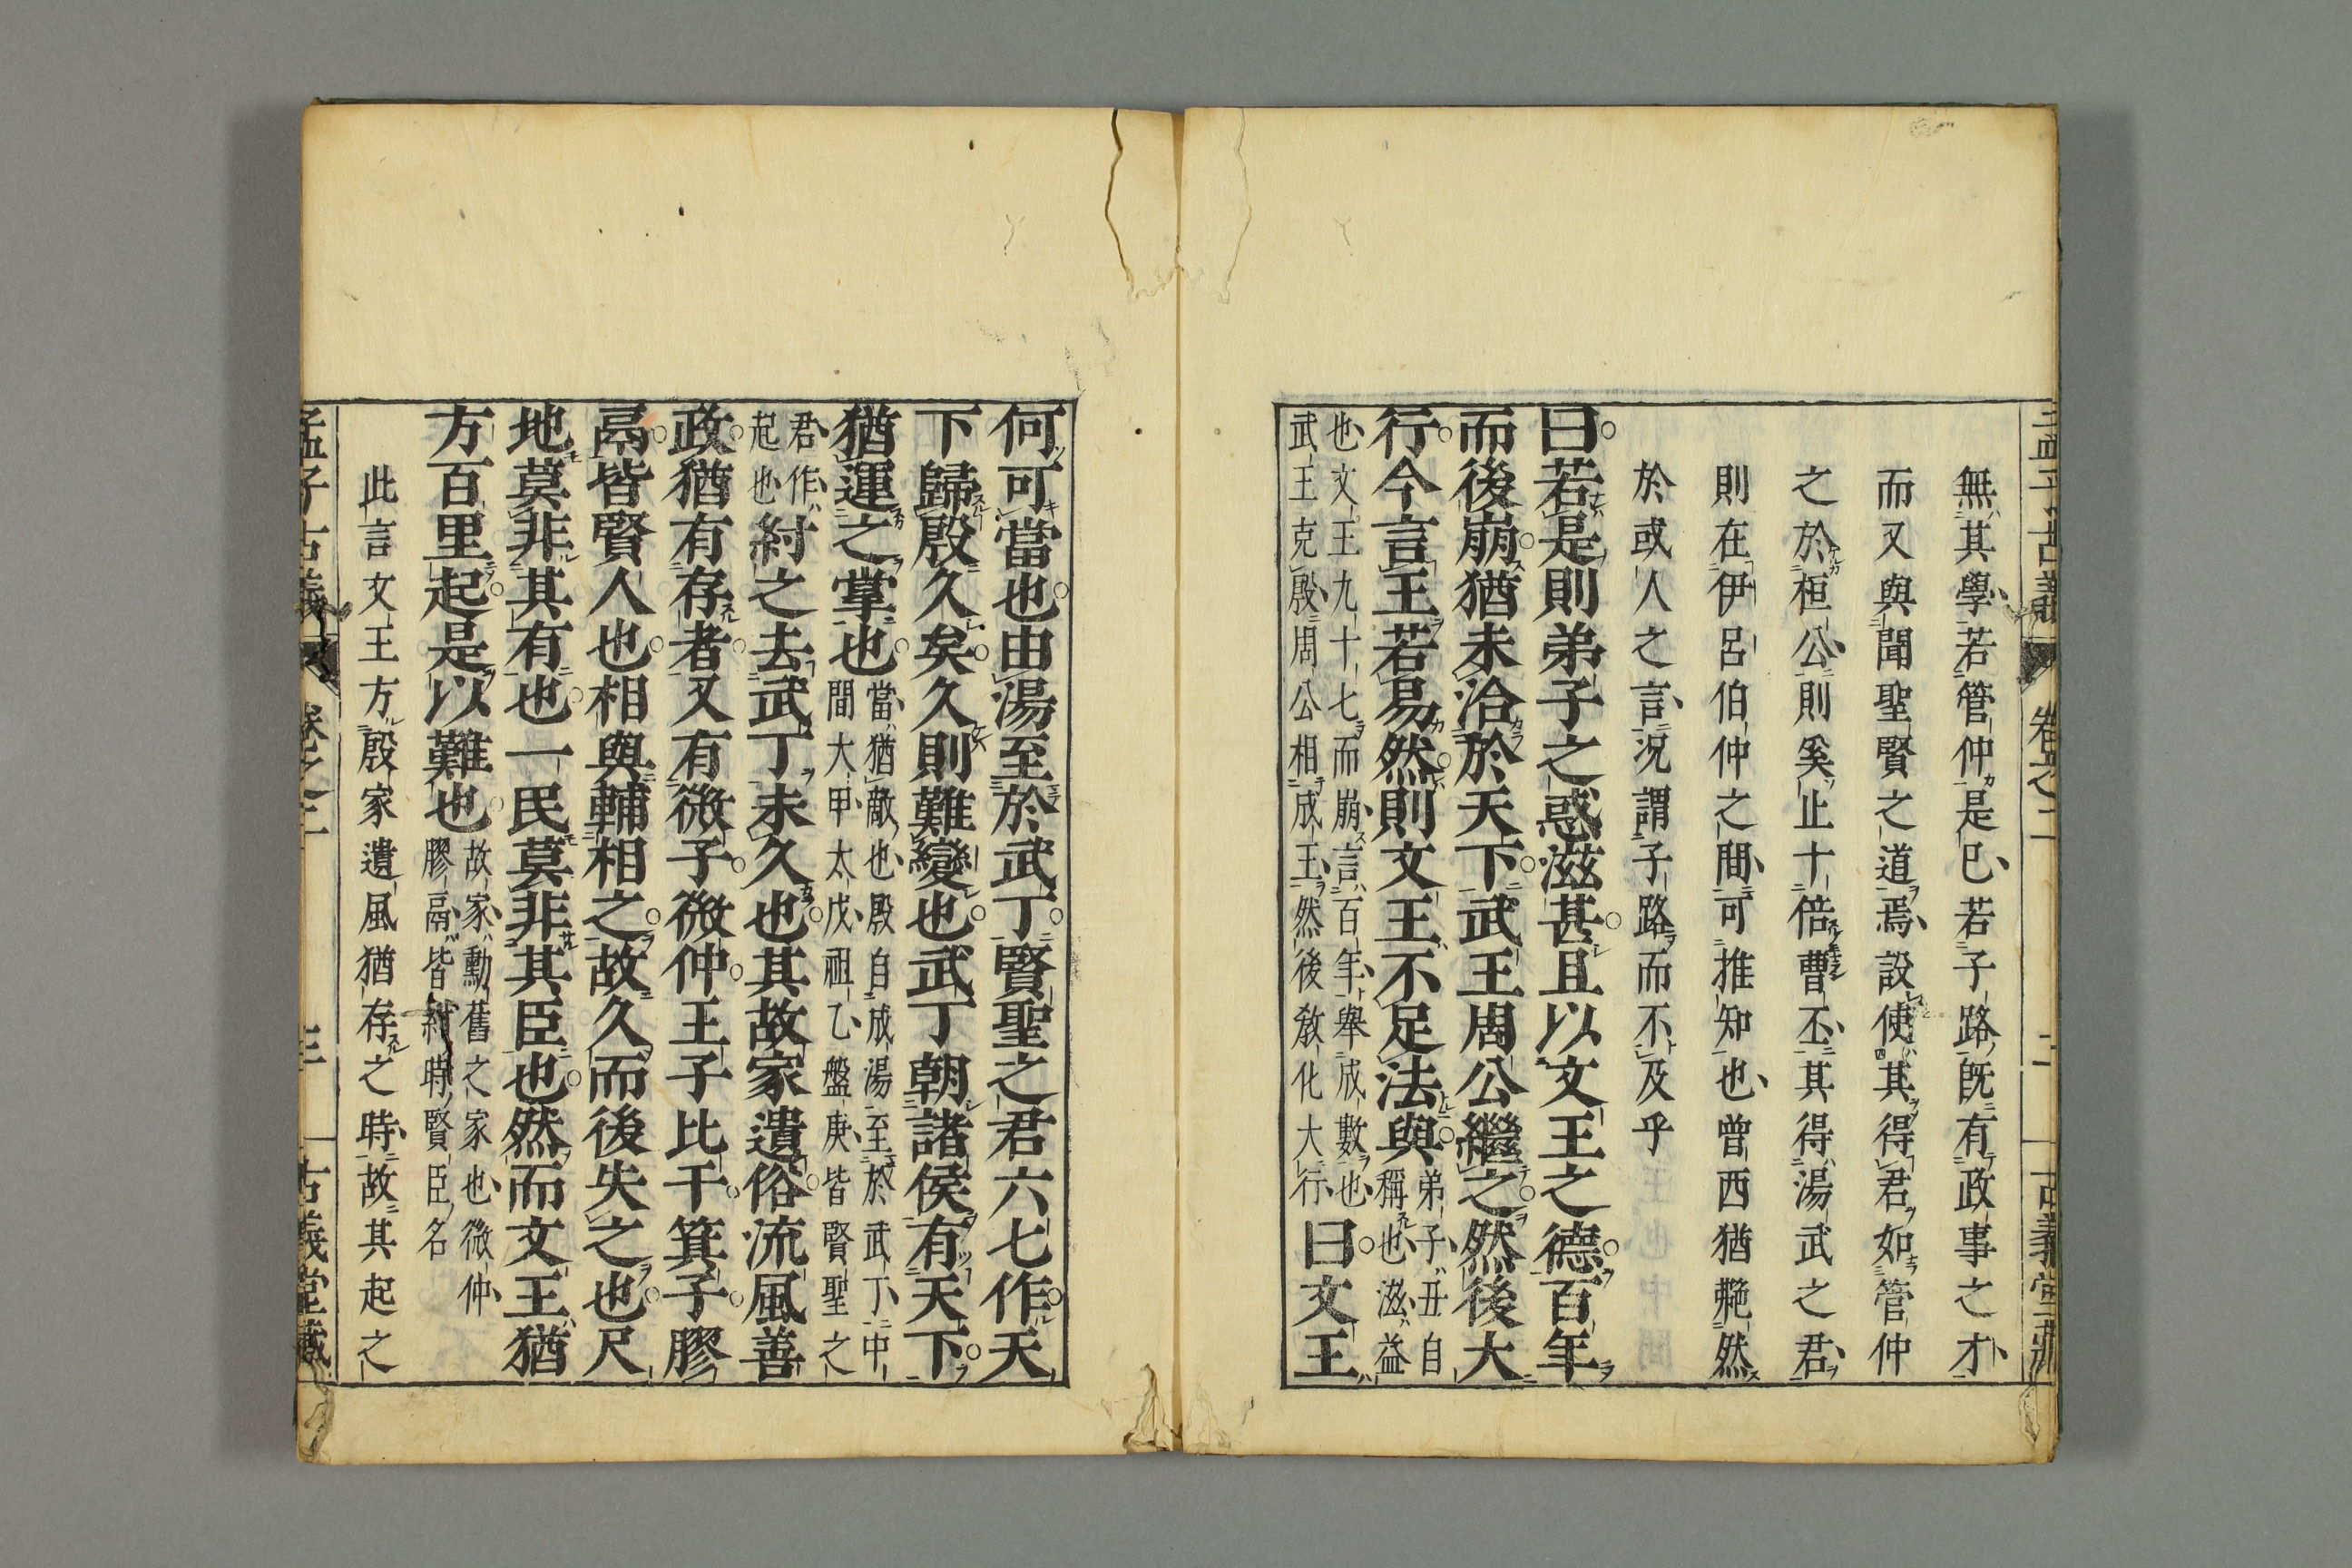 孟子古義 卷之二 二 古義堂藏
無其學若管仲是已若子路既有政事之才
而又與聞聖賢之道焉設使其得君如管仲
之於桓公則奚止十倍曹丕其得湯武之君
則在伊呂伯仲之間可推知也曾西猶艴然
於或人之言況謂子路而不及乎
曰若是則弟子之惑滋甚且以文王之德百年
而後崩猶未洽於天下武王周公繼之然後大
行今言王若易然則文王不足法與
弟子丑自
稱也滋益
也文王九十七而崩言百年舉成數也
武王克殷周公相成王然後教化大行
曰文王
何可當也由湯至於武丁賢聖之君六七作天
下歸殷久矣久則難變也武丁朝諸侯有天下
猶運之掌也
當猶敵也殷自成湯至於武丁中
間大甲太戊祖乙盤庚皆賢聖之
君作
起也
紂之去武丁未久也其故家遺俗流風善
政猶有存者又有微子微仲王子比干箕子膠
鬲皆賢人也相與輔相之故久而後失之也尺
地莫非其有也一民莫非其臣也然而文王猶
方百里起是以難也
故家勳舊之家也微仲
膠鬲皆紂時賢臣名
此言文王方殷家遺風猶存之時故其起之
孟子古義 卷之二 三 古義堂藏